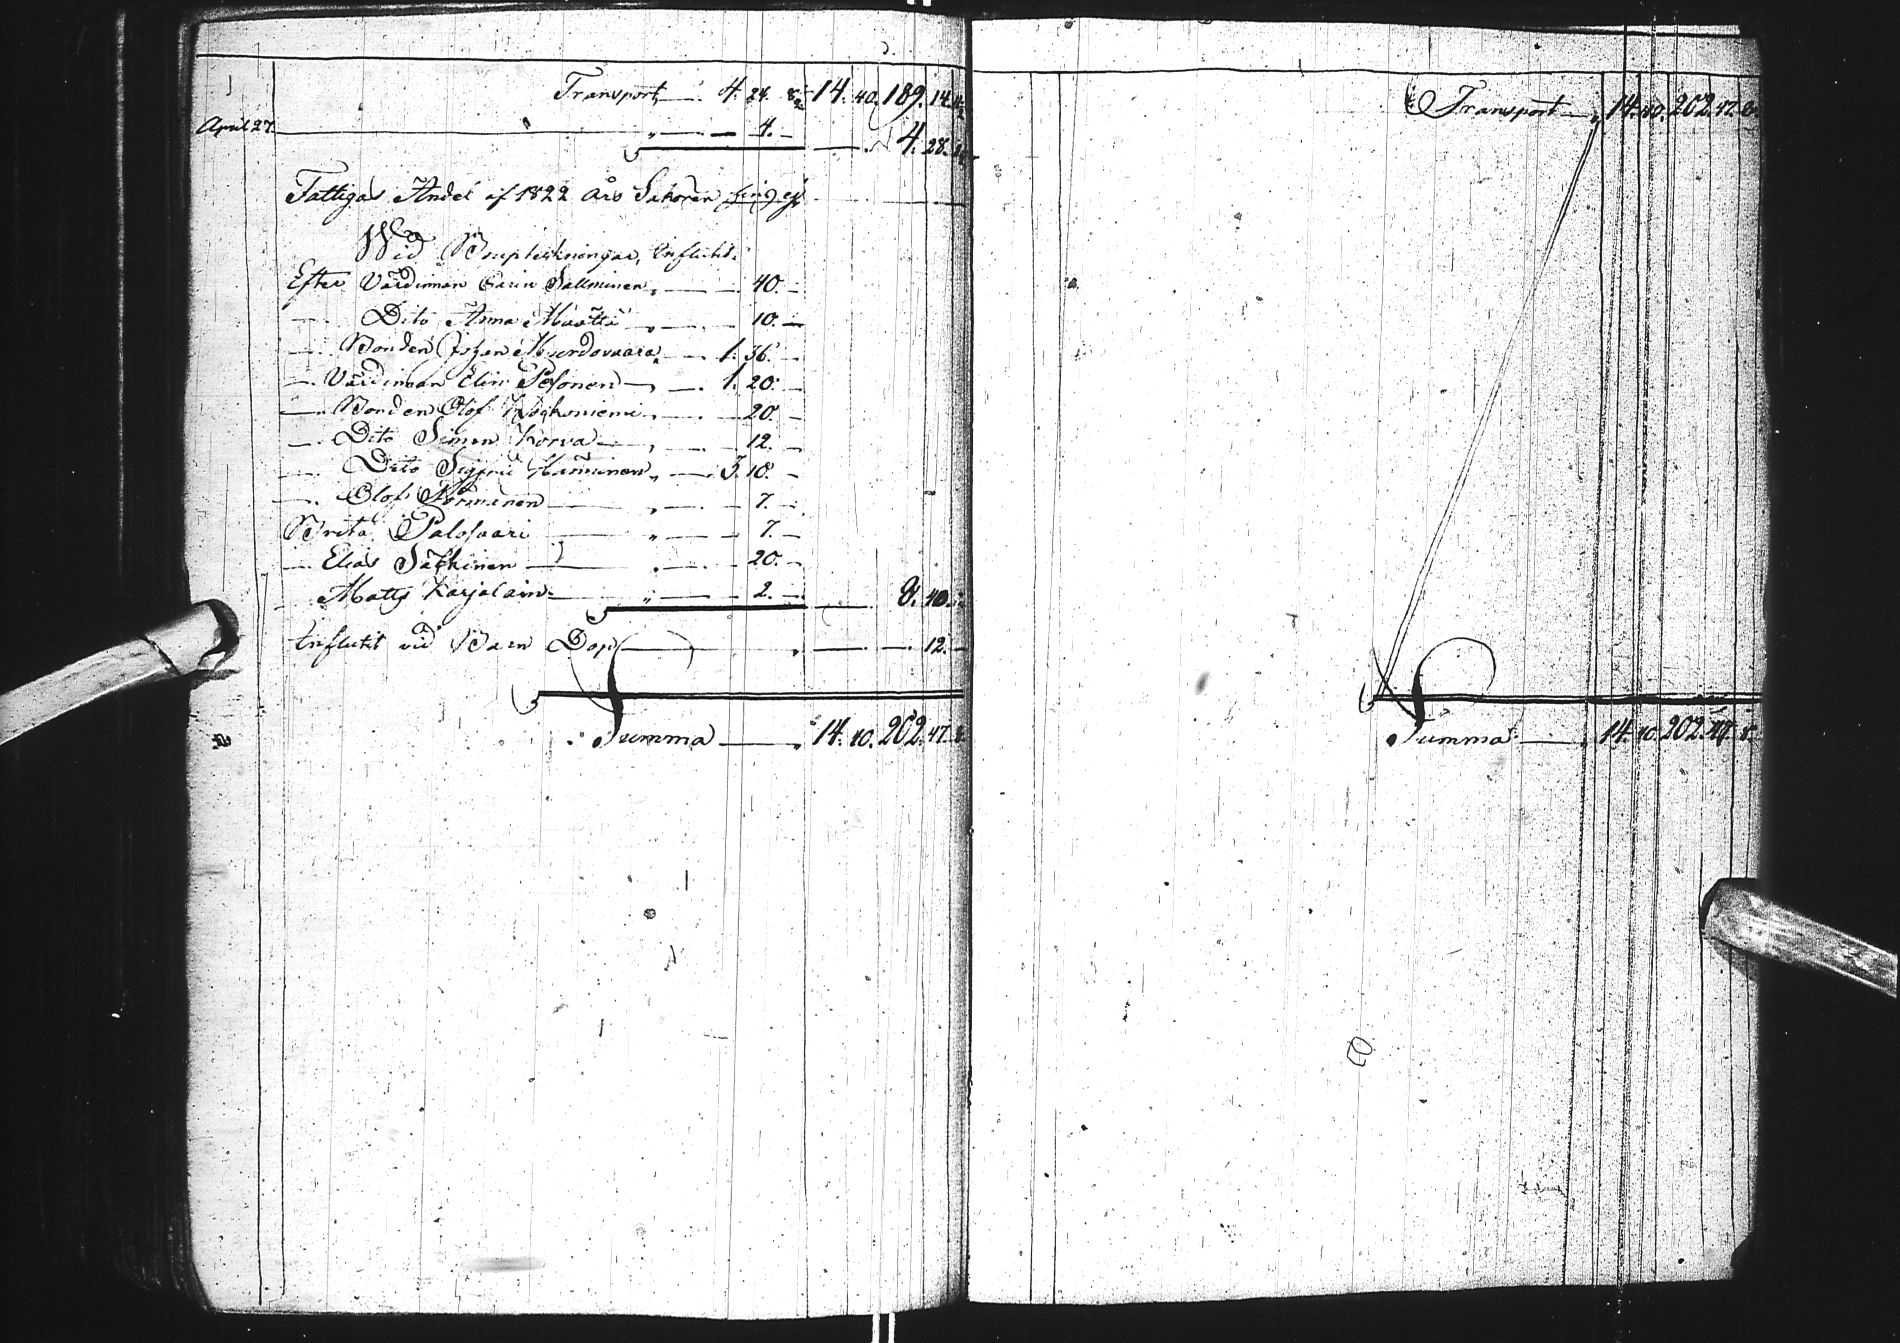 Transport 4. 24. 8 14. 40. 189. 14.
April 27. " 4. — 4. 28.
Fattigas Andel af 1822 års Sakören
Wid influtit:
Efter Värdinnan Carin Sallminen " 40. —
— Dito Anna Määttä " 10. —
— Bonden Johan Murdovaara " 1. 36. —
— Värdinnan Elin Pesonen " 1. 20. —
— Bonden Olof " 20. —
— Dito Simon Korva " 12. —
— Dito Hänninen " 3. 18. —
— Olof Nörminen " 7. —
Brita Palovaari " 7. —
— Elias Säkkinen " 20. —
— Matts Karjalain: " 2. — 8. 40.
Influtit vid Barn Dop " 12. —
Summa " 14. 40. 202. 47. 8.
Transport " 14. 40. 202. 47. 8.
Summa " 14. 40. 202. 47. 8.